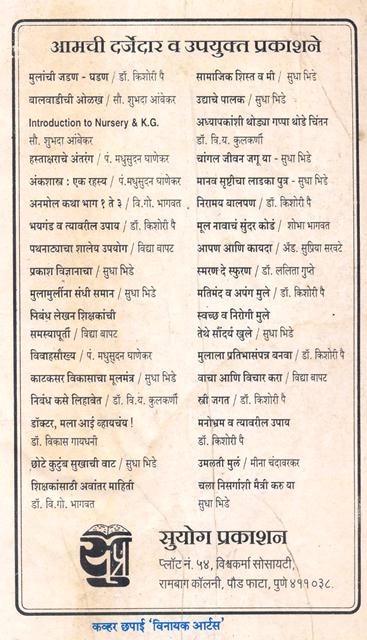 आमची दर्जेदार व उपयुक्त प्रकाशने
मुलांची जडण - घडण / डॉ. किशोरी पै
बालवाडीची ओळख / सौ. शुभदा आंबेकर
Introduction to Nursery & K.G.
सौ. शुभदा आंबेकर
हस्ताक्षराचे अंतरंग / पं. मधुसुदन घाणेकर
अंकशास्त्र : एक रहस्य / पं. मधुसुदन घाणेकर
अनमोल कथा भाग १ ते ३ / वि.गो. भागवत
भयगंड व त्यावरील उपाय / डॉ. किशोरी पै
पथनाट्याचा शालेय उपयोग / विद्या बापट
प्रकाश विज्ञानाचा / सुधा भिडे
मुलामुलींना संधी समान / सुधा भिडे
निबंध लेखन शिक्षकांची
समस्यापूर्ती / विद्या बापट
विवाहसौख्य / पं. मधुसुदन घाणेकर
काटकसर विकासाचा मूलमंत्र / सुधा भिडे
निबंध कसे लिहावेत / डॉ. वि.य. कुलकर्णी
डॉक्टर, मला आई व्हायचंय !
डॉ. विकास गायधनी
छोटे कुटुंब सुखाची वाट / सुधा भिडे
शिक्षकांसाठी अवांतर माहिती
डॉ. वि.गो. भागवत
सामाजिक शिस्त व मी / सुधा भिडे
उद्याचे पालक / सुधा भिडे
अध्यापकांशी थोड्या गप्पा थोडे चिंतन
डॉ. वि.य. कुलकर्णी
चांगल जीवन जगू या - सुधा भिडे
मानव सृष्टीचा लाडका पुत्र - सुधा भिडे
निरामय बालपण / डॉ. किशोरी पै
मूल नावाचं सुंदर कोडं / शोभा भागवत
आपण आणि कायदा / ॲड. सुप्रिया सरवटे
स्मरण दे स्फुरण / डॉ. ललिता गुप्ते
मतिमंद व अपंग मुले / डॉ. किशोरी पै
स्वच्छ व निरोगी मुले
तेथे सौंदर्य खुले / सुधा भिडे
मुलाला प्रतिभासंपन्न बनवा / डॉ. किशोरी पै
वाचा आणि विचार करा / विद्या बापट
स्त्री जगत / डॉ. किशोरी पै
मनोभ्रम व त्यावरील उपाय
डॉ. किशोरी पै
उमलती मुलं / मीना चंदावरकर
चला निसर्गाशी मैत्री करु या
सुधा भिडे
सुप्र
सुयोग प्रकाशन
प्लॉट नं. ५४, विश्वकर्मा सोसायटी,
रामबाग कॉलनी, पौड फाटा, पुणे ४११ ०३८.
कव्हर छपाई 'विनायक आर्टस'